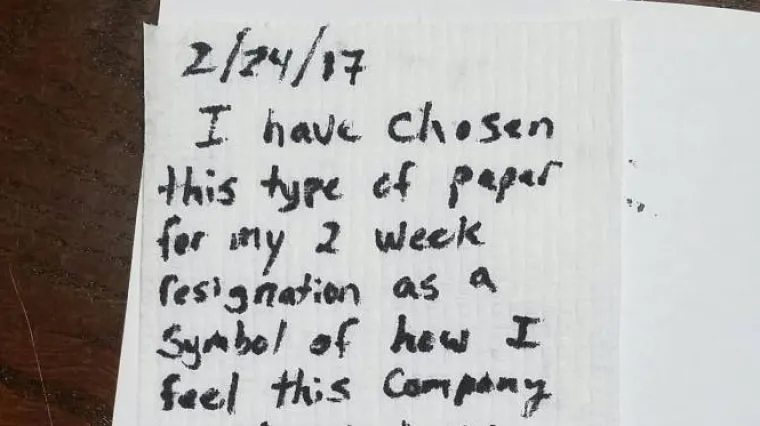 2/24/17
I have chosen
this type of paper
for my 2 week
resignation as a
symbol of how I
feel this company